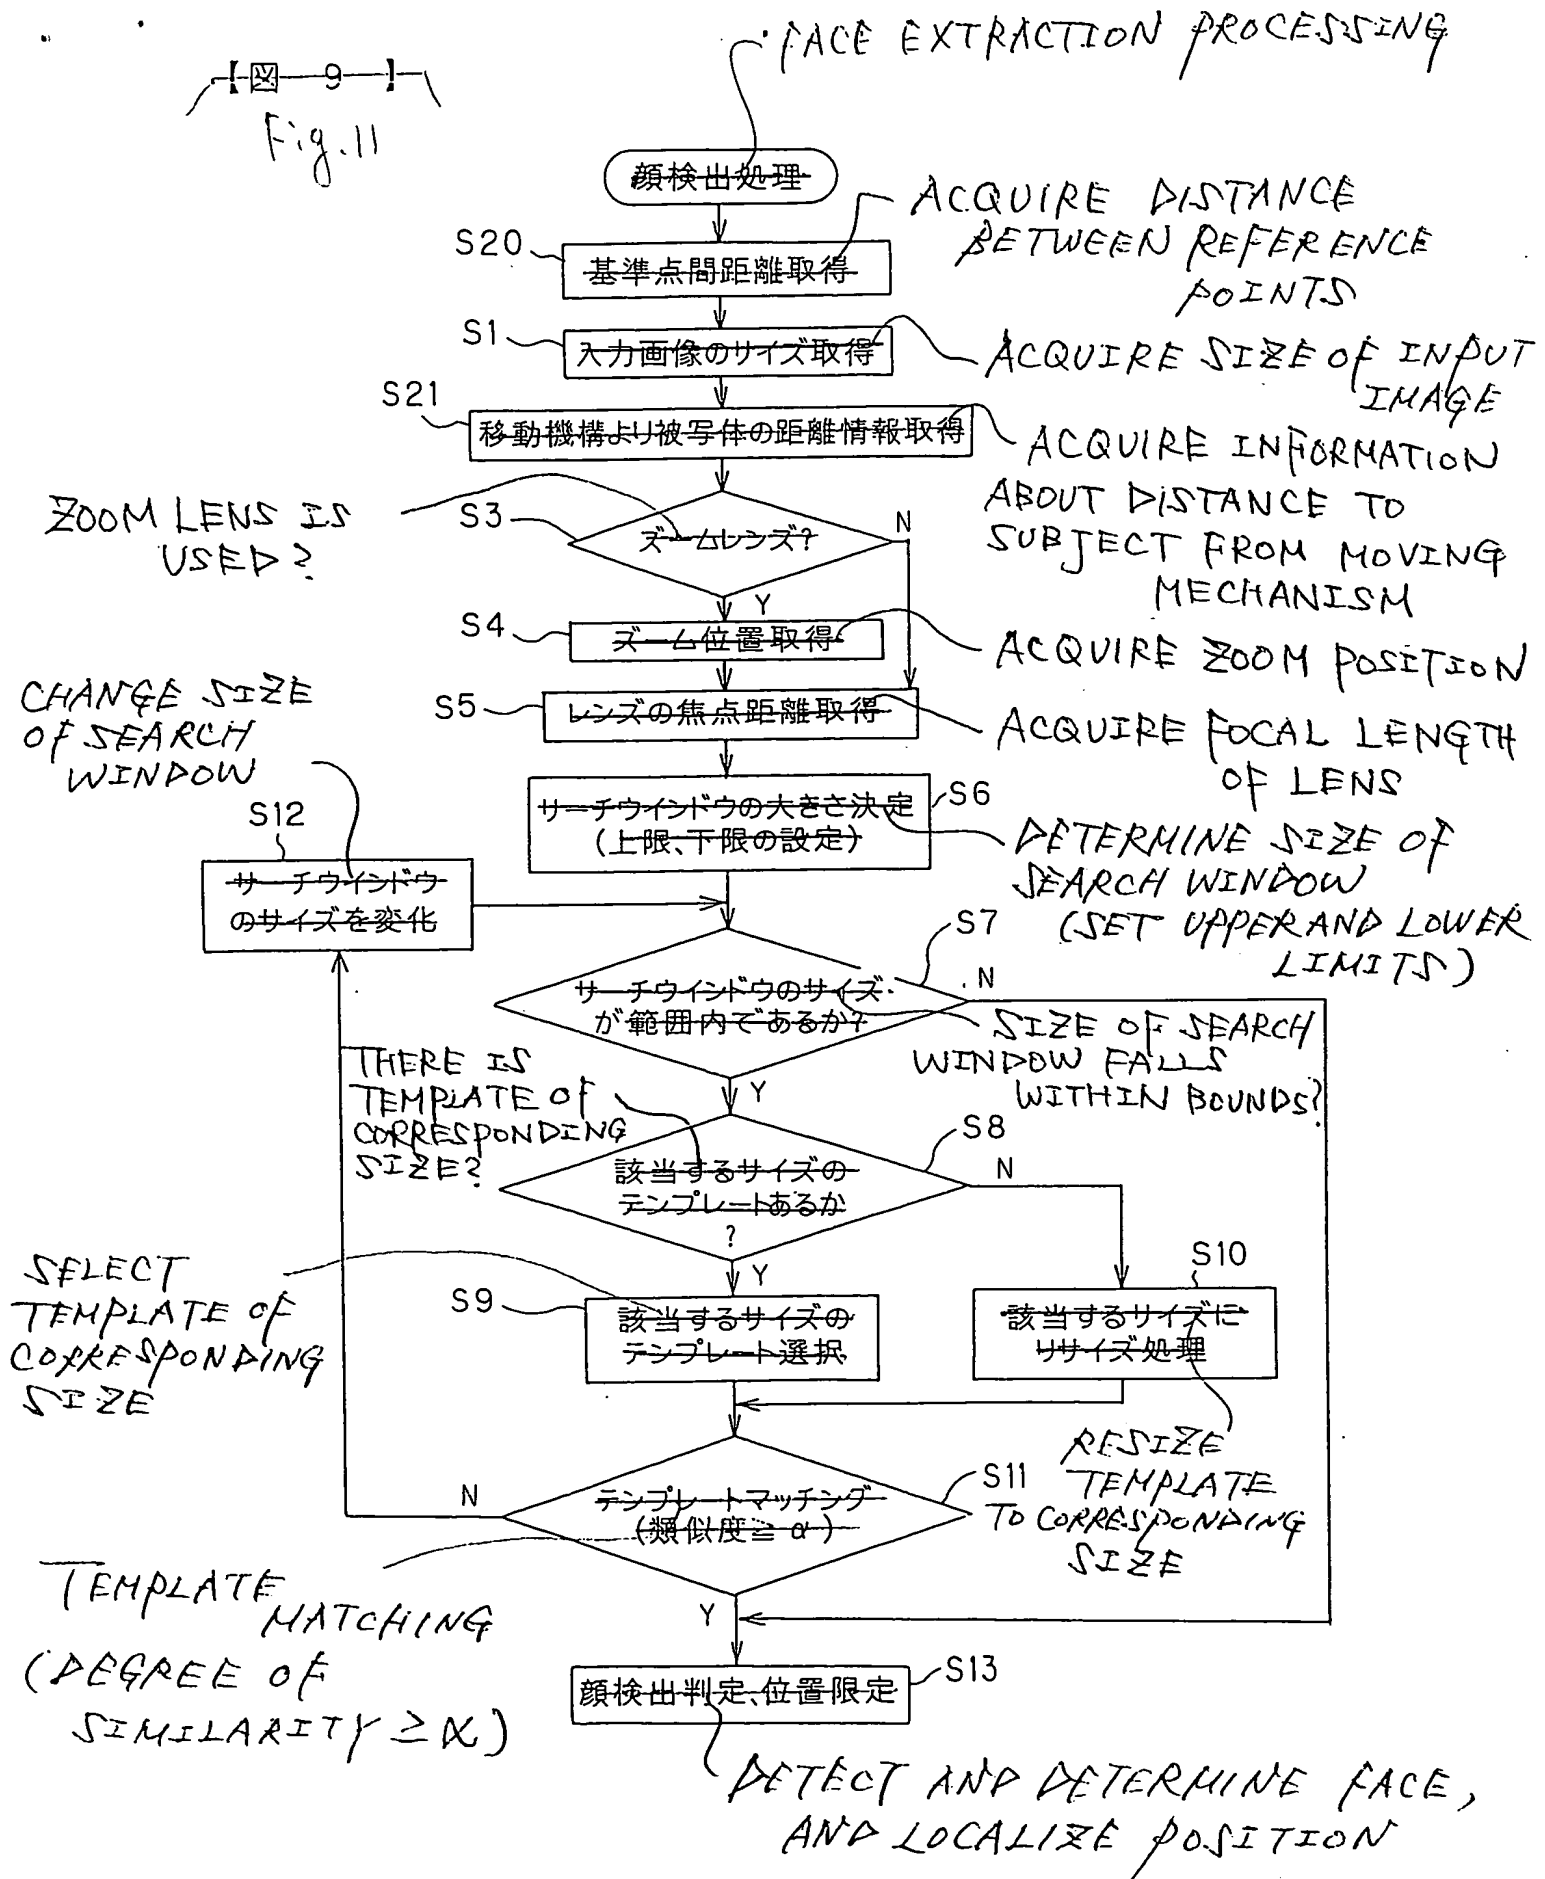 【図 9】
Fig.11
FACE EXTRACTION PROCESSING
顔検出処理
ACQUIRE DISTANCE
BETWEEN REFERENCE
POINTS
S20
基準点間距離取得
S1
入力画像のサイズ取得
ACQUIRE SIZE OF INPUT
IMAGE
S21
移動機構より被写体の距離情報取得
ACQUIRE INFORMATION
ABOUT DISTANCE TO
SUBJECT FROM MOVING
MECHANISM
ZOOM LENS IS
USED?
S3
ズームレンズ?
N
Y
S4
ズーム位置取得
ACQUIRE ZOOM POSITION
S5
レンズの焦点距離取得
ACQUIRE FOCAL LENGTH
OF LENS
CHANGE SIZE
OF SEARCH
WINDOW
S12
サーチウインドウ
のサイズを変化
S6
サーチウインドウの大きさ決定
(上限、下限の設定)
DETERMINE SIZE OF
SEARCH WINDOW
(SET UPPER AND LOWER
LIMITS)
S7
サーチウインドウのサイズ
が範囲内であるか?
N
Y
SIZE OF SEARCH
WINDOW FALLS
WITHIN BOUNDS?
THERE IS
TEMPLATE OF
CORRESPONDING
SIZE?
S8
該当するサイズの
テンプレートあるか
?
N
Y
SELECT
TEMPLATE OF
CORRESPONDING
SIZE
S9
該当するサイズの
テンプレート選択
S10
該当するサイズに
リサイズ処理
RESIZE
TEMPLATE
TO CORRESPONDING
SIZE
S11
テンプレートマッチング
(類似度≧α)
N
Y
TEMPLATE
MATCHING
(DEGREE OF
SIMILARITY ≥ α)
S13
顔検出判定、位置限定
DETECT AND DETERMINE FACE,
AND LOCALIZE POSITION